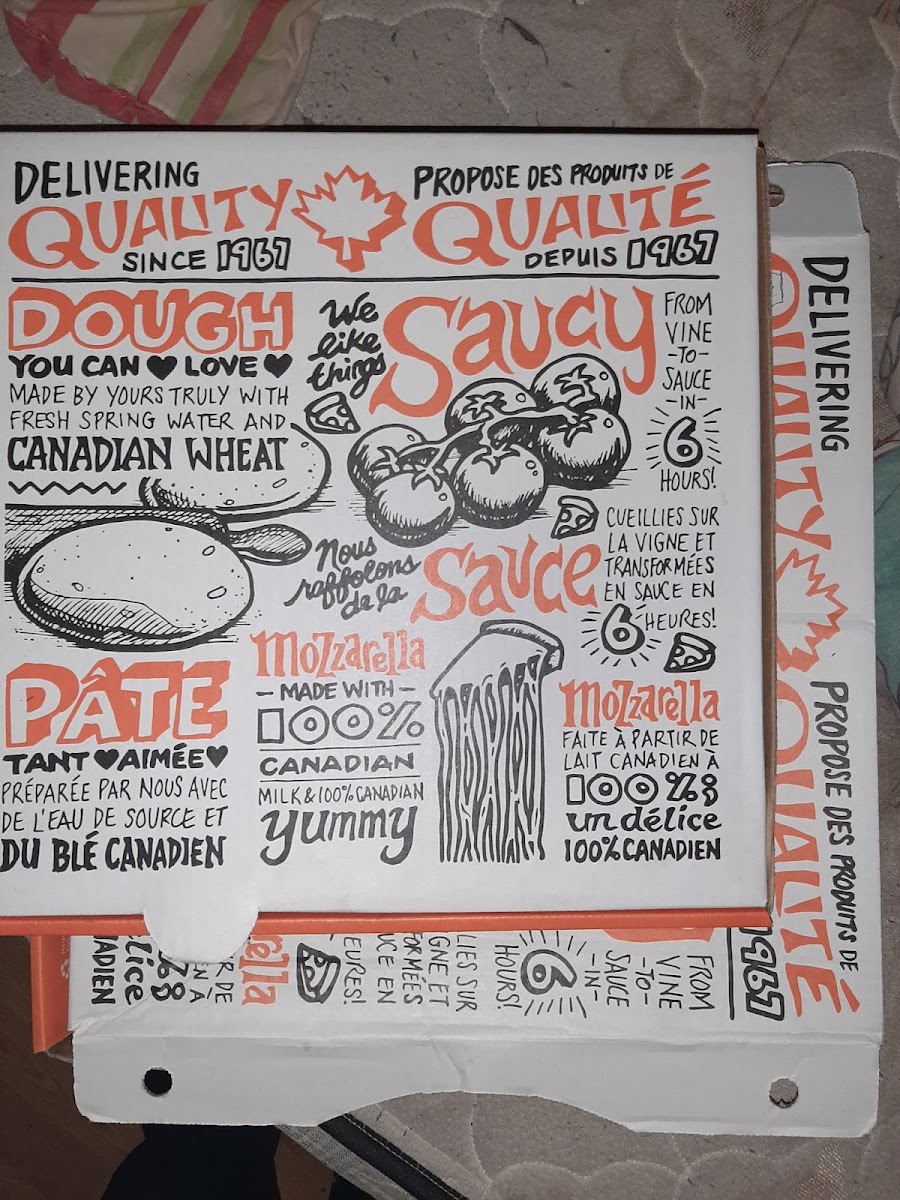 DELIVERING
QUALITY
SINCE 1967
PROPOSE DES PRODUITS DE
QUALITÉ
DEPUIS 1967
DOUGH
YOU CAN ♥ LOVE ♥
MADE BY YOURS TRULY WITH
FRESH SPRING WATER AND
CANADIAN WHEAT
We
like
things
Saucy
FROM
VINE
-TO-
SAUCE
-IN-
6
HOURS!
Nous
raffolons
de la
Sauce
CUEILLIES SUR
LA VIGNE ET
TRANSFORMÉES
EN SAUCE EN
6 HEURES!
PÂTE
TANT ♥ AIMÉE ♥
PRÉPARÉE PAR NOUS AVEC
DE L'EAU DE SOURCE ET
DU BLÉ CANADIEN
Mozzarella
- MADE WITH -
100%
CANADIAN
MILK & 100% CANADIAN
yummy
Mozzarella
FAITE À PARTIR DE
LAIT CANADIEN À
100% &
un délice
100% CANADIEN
DELIVERING
QUALITY
PROPOSE DES PRODUITS DE
QUALITÉ
1967
FROM
VINE
-TO-
SAUCE
-IN-
6
HOURS!
LIES SUR
GNE ET
FORMÉES
UCE EN
EURES!
ella
R DE
EN À
%&
lice
ADIEN